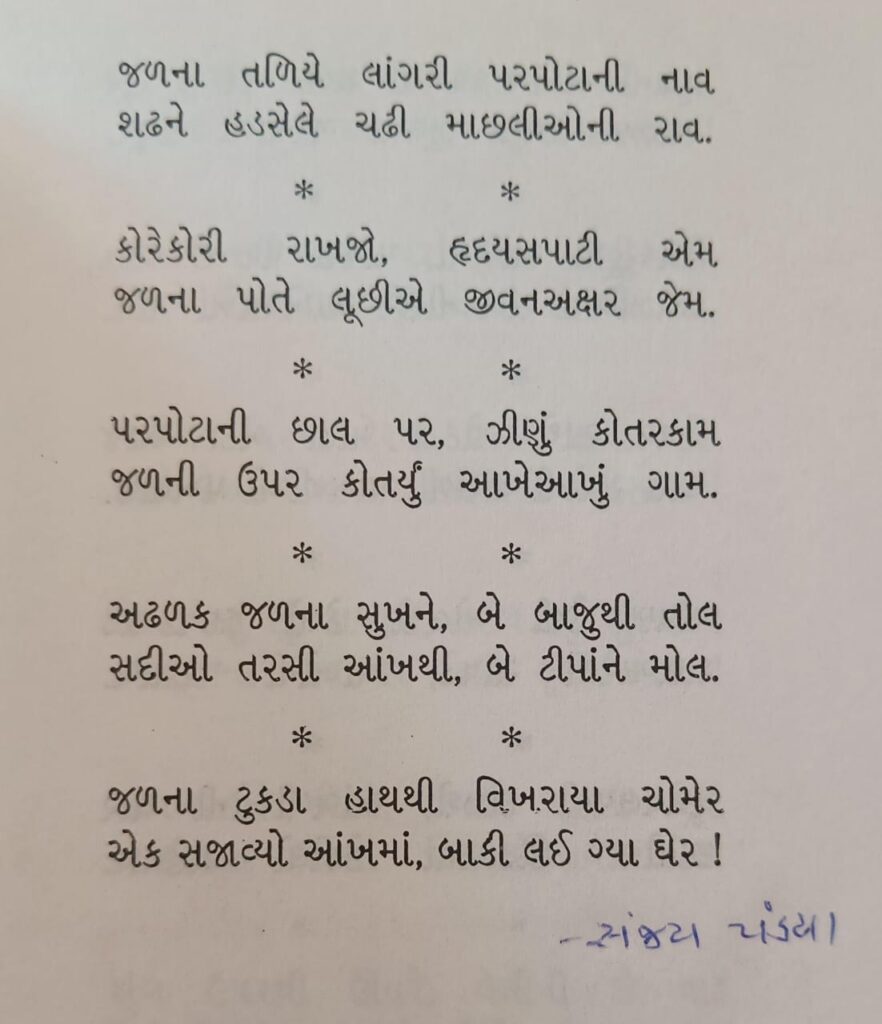 જળના તળિયે લાંગરી પરપોટાની નાવ
શઢને હડસેલે ચઢી માછલીઓની રાવ.
* *
કોરેકોરી રાખજો, હૃદયસપાટી એમ
જળના પોતે લૂછીએ જીવનઅક્ષર જેમ.
* *
પરપોટાની છાલ પર, ઝીણું કોતરકામ
જળની ઉપર કોતર્યું આખેઆખું ગામ.
* *
અઢળક જળના સુખને, બે બાજુથી તોલ
સદીઓ તરસી આંખથી, બે ટીપાંને મોલ.
* *
જળના ટુકડા હાથથી વિખરાયા ચોમેર
એક સજાવ્યો આંખમાં, બાકી લઈ ગ્યા ઘેર !
- સંજય પંડ્યા